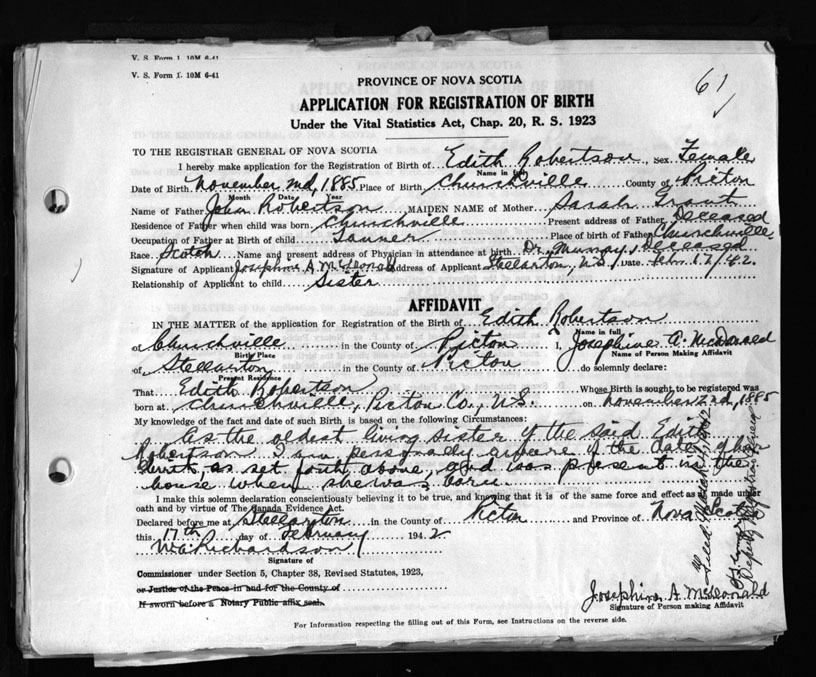 V. S. Form 1. 10M 6-41
V. S. Form 1. 10M 6-41
61
PROVINCE OF NOVA SCOTIA
APPLICATION FOR REGISTRATION OF BIRTH
Under the Vital Statistics Act, Chap. 20, R. S. 1923
TO THE REGISTRAR GENERAL OF NOVA SCOTIA
I hereby make application for the Registration of Birth of Edith Robertson, sex Female
Name in full
Date of Birth November 2nd, 1885 Place of Birth Churchville County of Pictou
Month Date Year
Name of Father John Robertson MAIDEN NAME of Mother Sarah Grant
Residence of Father when child was born Churchville Present address of Father Deceased
Occupation of Father at Birth of child Tanner Place of Birth of Father Churchville
Race Scotch Name and present address of Physician in attendance at birth Dr. Murray, Deceased
Signature of Applicant Josephine A. McDonald Address of Applicant Stellarton, N.S. Date Feb. 17/42.
Relationship of Applicant to child Sister
AFFIDAVIT
IN THE MATTER of the application for Registration of the Birth of Edith Robertson
Name in full
of Churchville in the County of Pictou I, Josephine A. McDonald
Birth Place Name of Person Making Affidavit
of Stellarton in the County of Pictou do solemnly declare:
Present Residence
That Edith Robertson Whose Birth is sought to be registered was
born at Churchville, Pictou Co., N.S. on November 2nd, 1885
My knowledge of the fact and date of such Birth is based on the following Circumstances:
As the oldest living sister of the said Edith
Robertson I am personally aware of the date of her
birth as set forth above, and was present in the
house when she was born.
I make this solemn declaration conscientiously believing it to be true, and knowing that it is of the same force and effect as if made under
oath and by virtue of The Canada Evidence Act.
Declared before me at Stellarton in the County of Pictou and Province of Nova Scotia
this 17th day of February 1942
Wm. Richardson
Signature of
Commissioner under Section 5, Chapter 38, Revised Statutes, 1923,
or Justice of the Peace in and for the County of
If sworn before a Notary Public affix seal.
Josephine A. McDonald
Signature of Person making Affidavit
For Information respecting the filling out of this Form, see Instructions on the reverse side.
Deputy Registrar General